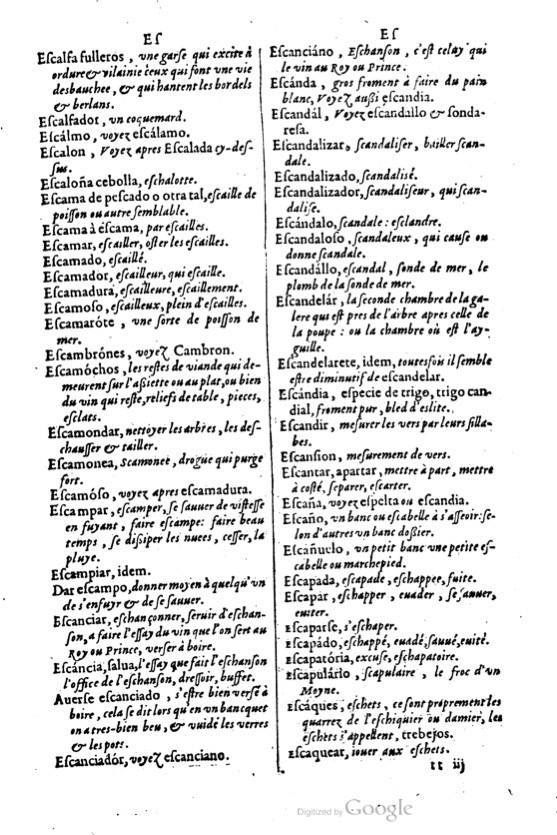 ES
Escalfa fulleros, vne garse qui excite à
ordure & vilainie ceux qui font vne vie
desbauchee, & qui hantent les bordels
& berlans.
Escalfador, vn coquemard.
Escálmo, voyez escálamo.
Escalon, Voyez apres Escalada cy-des-
sus.
Escaloña cebolla, eschalotte.
Escama de pescado o otra tal, escaille de
poisson ou autre semblable.
Escama à escama, par escailles.
Escamar, escailler, oster les escailles.
Escamado, escaillé.
Escamador, escailleur, qui escaille.
Escamadura, escailleure, escaillement.
Escamoso, escailleux, plein d'escailles.
Escamaróte, vne sorte de poisson de
mer.
Escambrónes, voyez Cambron.
Escamóchos, les restes de viande qui de-
meurent sur l'assiette ou au plat, ou bien
du vin qui reste, reliefs de table, pieces,
esclats.
Escamondar, nettoyer les arbres, les des-
chausser & tailler.
Escamonea, Scamonee, drogue qui purge
fort.
Escamóso, voyez apres escamadura.
Escampar, escamper, se sauuer de vistesse
en fuyant, faire escampe: faire beau
temps, se dissiper les nuees, cesser, la
pluye.
Escampiar, idem.
Dar escampo, donner moyen à quelqu'vn
de s'enfuyr & de se sauuer.
Escanciar, eschançonner, seruir d'eschan-
son, a faire l'essay du vin que l'on sert au
Roy ou Prince, verser à boire.
Escáncia, salua, l'essay que fait l'eschanson
l'office de l'eschanson, dressoir, buffet.
Auerse escanciado, s'estre bien versé à
boire, cela se dit lors qu'en vn bancquet
on a tres-bien beu, & vuidé les verres
& les pots.
Escanciadór, voyez escanciano.
ES
Escanciáno, Eschanson, c'est celuy qui
le vin au Roy ou Prince.
Escánda, gros froment à faire du pain
blanc, Voyez aussi escandia.
Escandál, Voyez escandallo & sonda-
resa.
Escandalizar, scandaliser, bailler scan-
dale.
Escandalizado, scandalisé.
Escandalizador, scandaliseur, qui scan-
dalise.
Escándalo, scandale: esclandre.
Escandaloso, scandaleux, qui cause ou
donne scandale.
Escandállo, escandal, sonde de mer, le
plomb de la sonde de mer.
Escandelár, la seconde chambre de la ga-
lere qui est pres de l'arbre apres celle de
la poupe: ou la chambre où est l'ay-
guille.
Escandelarete, idem, toutesfois il semble
estre diminutif de escandelar.
Escándia, especie de trigo, trigo can-
dial, froment pur, bled d'eslite.
Escandir, mesurer les vers par leurs silla-
bes.
Escansion, mesurement de vers.
Escantar, apartar, mettre à part, mettre
à costé, separer, escarter.
Escaña, voyez espelta ou escandia.
Escaño, vn banc ou escabelle à s'asseoir: se-
lon d'autres vn banc dossier.
Escañuelo, vn petit banc vne petite es-
cabelle ou marchepied.
Escapada, escapade, eschappee, fuite.
Escapar, eschapper, euader, se sauuer,
euiter.
Escaparse, s'eschaper.
Escapádo, eschappé, euadé, sauué, euité.
Escapatória, excuse, eschapatoire.
Escapulário, scapulaire, le froc d'vn
Moyne.
Escáques, eschets, ce sont proprement les
quarrez de l'eschiquier ou damier, les
eschets s'appellent, trebejos.
Escaquear, iouer aux eschets.
tt iij
Digitized by Google